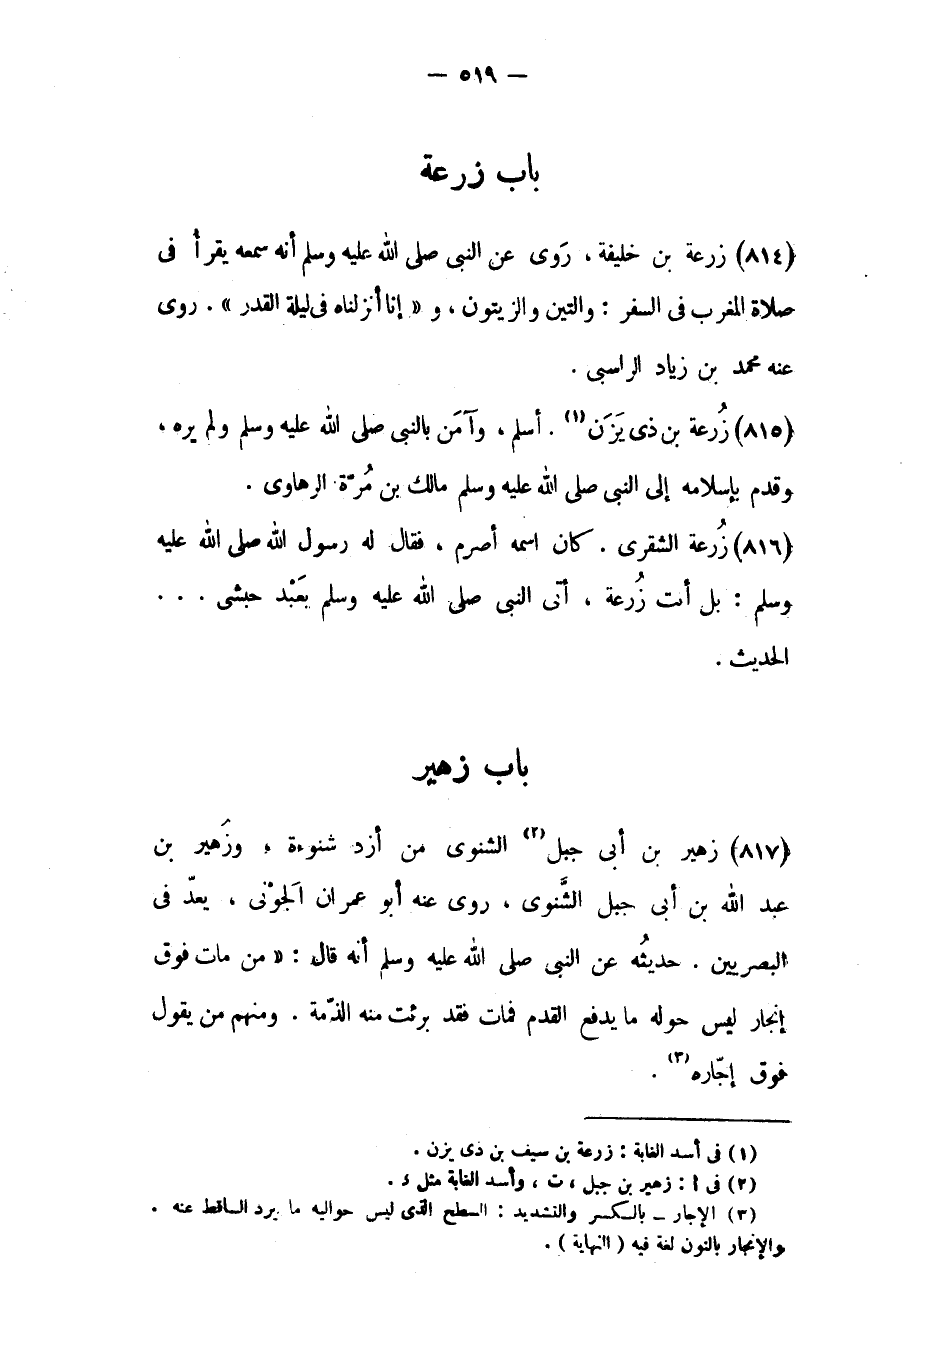 — ٥١٩ —
باب زرعة
(٨١٤) زرعة بن خليفة ، رَوى عن النبى صلى الله عليه وسلم أنه سمعه يقرأ فى
صلاة المغرب فى السفر : والتين والزيتون ، و « إنا أنزلناه فى ليلة القدر » . روى
عنه محمد بن زياد الراسبى .
(٨١٥) زُرعة بن ذى يَزَن (١) . أسلم ، وآمَن بالنبى صلى الله عليه وسلم ولم يره ،
وقدم بإسلامه إلى النبى صلى الله عليه وسلم مالك بن مُرّة الرهاوى .
(٨١٦) زُرعة الشقرى . كان اسمه أصرم ، فقال له رسول الله صلى الله عليه
وسلم : بل أنت زُرعة ، أتى النبى صلى الله عليه وسلم بَعَبْد حبشى . . .
الحديث .
باب زهير
(٨١٧) زهير بن أبى جبل (٢) الشنوى من أزد شنوءة ، وزَهير بن
عبد الله بن أبى جبل الشَّنوى ، روى عنه أبو عمران الَجوْنى ، يعدّ فى
البصريين . حديثُه عن النبى صلى الله عليه وسلم أنه قال : « من مات فوق
إنجار ليس حوله ما يدفع القدم فمات فقد برئت منه الذمّة . ومنهم من يقول
فوق إجّاره (٣) .
(١) فى أسد الغابة : زرعة بن سيف بن ذى يزن .
(٢) فى ا : زهير بن جبل ، ت ، وأسد الغابة مثل ء .
(٣) الإجار ــ بالكسر والتشديد : السطح الذى ليس حواليه ما يرد الساقط عنه .
والإنجار بالنون لغة فيه ( النهاية ) .